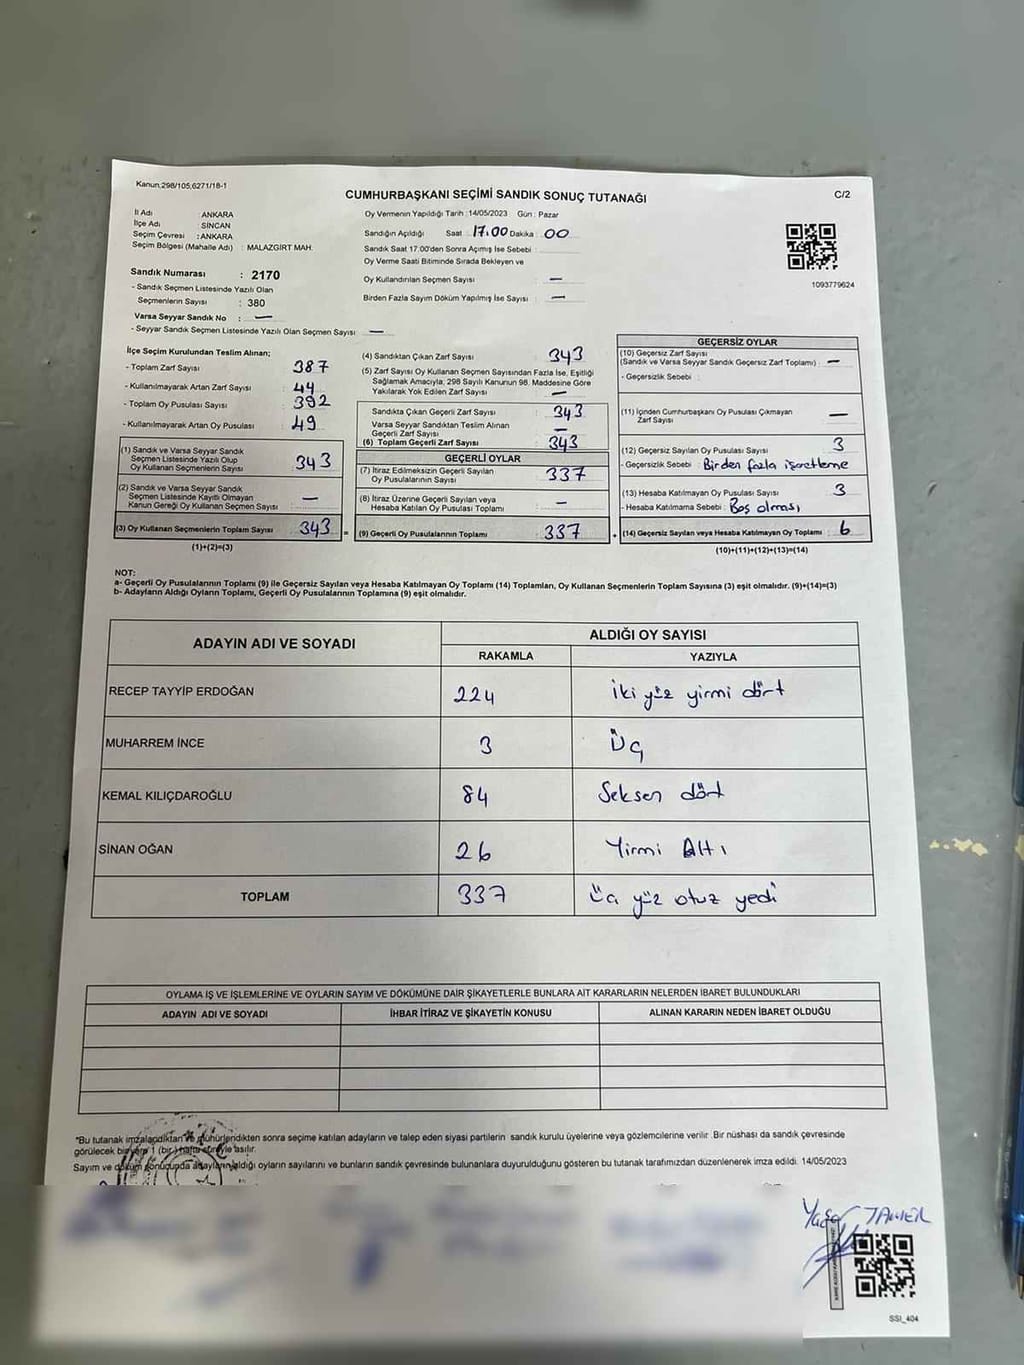 Kanun;298/105;6271/18-1
CUMHURBAŞKANI SEÇİMİ SANDIK SONUÇ TUTANAĞI
C/2
İl Adı : ANKARA
İlçe Adı : SİNCAN
Seçim Çevresi : ANKARA
Seçim Bölgesi (Mahalle Adı) : MALAZGİRT MAH.
Oy Vermenin Yapıldığı Tarih :14/05/2023 Gün : Pazar
Sandığın Açıldığı Saat 17.00 Dakika : 00
Sandık Saat 17:00'den Sonra Açımış İse Sebebi :
Oy Verme Saati Bitiminde Sırada Bekleyen ve
Oy Kullandırılan Seçmen Sayısı : —
Birden Fazla Sayım Döküm Yapılmış İse Sayısı : —
1093779624
Sandık Numarası : 2170
- Sandık Seçmen Listesinde Yazılı Olan
Seçmenlerin Sayısı : 380
Varsa Seyyar Sandık No : —
- Seyyar Sandık Seçmen Listesinde Yazılı Olan Seçmen Sayısı : —
İlçe Seçim Kurulundan Teslim Alınan;
- Toplam Zarf Sayısı : 387
- Kullanılmayarak Artan Zarf Sayısı : 44
- Toplam Oy Pusulası Sayısı : 392
- Kullanılmayarak Artan Oy Pusulası : 49
(1) Sandık ve Varsa Seyyar Sandık
Seçmen Listesinde Yazılı Olup
Oy Kullanan Seçmenlerin Sayısı : 343
(2) Sandık ve Varsa Seyyar Sandık
Seçmen Listesinde Kayıtlı Olmayan
Kanun Gereği Oy Kullanan Seçmen Sayısı : —
(3) Oy Kullanan Seçmenlerin Toplam Sayısı : 343
(1)+(2)=(3)
(4) Sandıktan Çıkan Zarf Sayısı : 343
(5) Zarf Sayısı Oy Kullanan Seçmen Sayısından Fazla İse, Eşitliği
Sağlamak Amacıyla, 298 Sayılı Kanunun 98. Maddesine Göre
Yakılarak Yok Edilen Zarf Sayısı : —
Sandıkta Çıkan Geçerli Zarf Sayısı : 343
Varsa Seyyar Sandıktan Teslim Alınan
Geçerli Zarf Sayısı : —
(6) Toplam Geçerli Zarf Sayısı : 343
GEÇERLİ OYLAR
(7) İtiraz Edilmeksizin Geçerli Sayılan
Oy Pusulalarının Sayısı : 337
(8) İtiraz Üzerine Geçerli Sayılan veya
Hesaba Katılan Oy Pusulası Toplamı : —
= (9) Geçerli Oy Pusulalarının Toplamı : 337
GEÇERSİZ OYLAR
(10) Geçersiz Zarf Sayısı
(Sandık ve Varsa Seyyar Sandık Geçersiz Zarf Toplamı) : —
- Geçersizlik Sebebi :
(11) İçinden Cumhurbaşkanı Oy Pusulası Çıkmayan
Zarf Sayısı : —
(12) Geçersiz Sayılan Oy Pusulası Sayısı : 3
- Geçersizlik Sebebi : Birden fazla işaretleme
(13) Hesaba Katılmayan Oy Pusulası Sayısı : 3
- Hesaba Katılmama Sebebi : Boş olması
+ (14) Geçersiz Sayılan veya Hesaba Katılmayan Oy Toplamı : 6
(10)+(11)+(12)+(13)=(14)
NOT:
a- Geçerli Oy Pusulalarının Toplamı (9) ile Geçersiz Sayılan veya Hesaba Katılmayan Oy Toplamı (14) Toplamları, Oy Kullanan Seçmenlerin Toplam Sayısına (3) eşit olmalıdır. (9)+(14)=(3)
b- Adayların Aldığı Oyların Toplamı, Geçerli Oy Pusulalarının Toplamına (9) eşit olmalıdır.
ADAYIN ADI VE SOYADI
ALDIĞI OY SAYISI
RAKAMLA YAZIYLA
RECEP TAYYİP ERDOĞAN 224 iki yüz yirmi dört
MUHARREM İNCE 3 Üç
KEMAL KILIÇDAROĞLU 84 Seksen dört
SİNAN OĞAN 26 Yirmi Altı
TOPLAM 337 üç yüz otuz yedi
OYLAMA İŞ VE İŞLEMLERİNE VE OYLARIN SAYIM VE DÖKÜMÜNE DAİR ŞİKAYETLERLE BUNLARA AİT KARARLARIN NELERDEN İBARET BULUNDUKLARI
ADAYIN ADI VE SOYADI İHBAR İTİRAZ VE ŞİKAYETİN KONUSU ALINAN KARARIN NEDEN İBARET OLDUĞU
*Bu tutanak imzalandıktan ve mühürlendikten sonra seçime katılan adayların ve talep eden siyasi partilerin sandık kurulu üyelerine veya gözlemcilerine verilir .Bir nüshası da sandık çevresinde
görülecek bir yere 1 (bir) hafta süreyle asılır.
Sayım ve döküm sonucunda adayların aldığı oyların sayılarını ve bunların sandık çevresinde bulunanlara duyurulduğunu gösteren bu tutanak tarafımızdan düzenlenerek imza edildi. 14/05/2023
SSİ_404